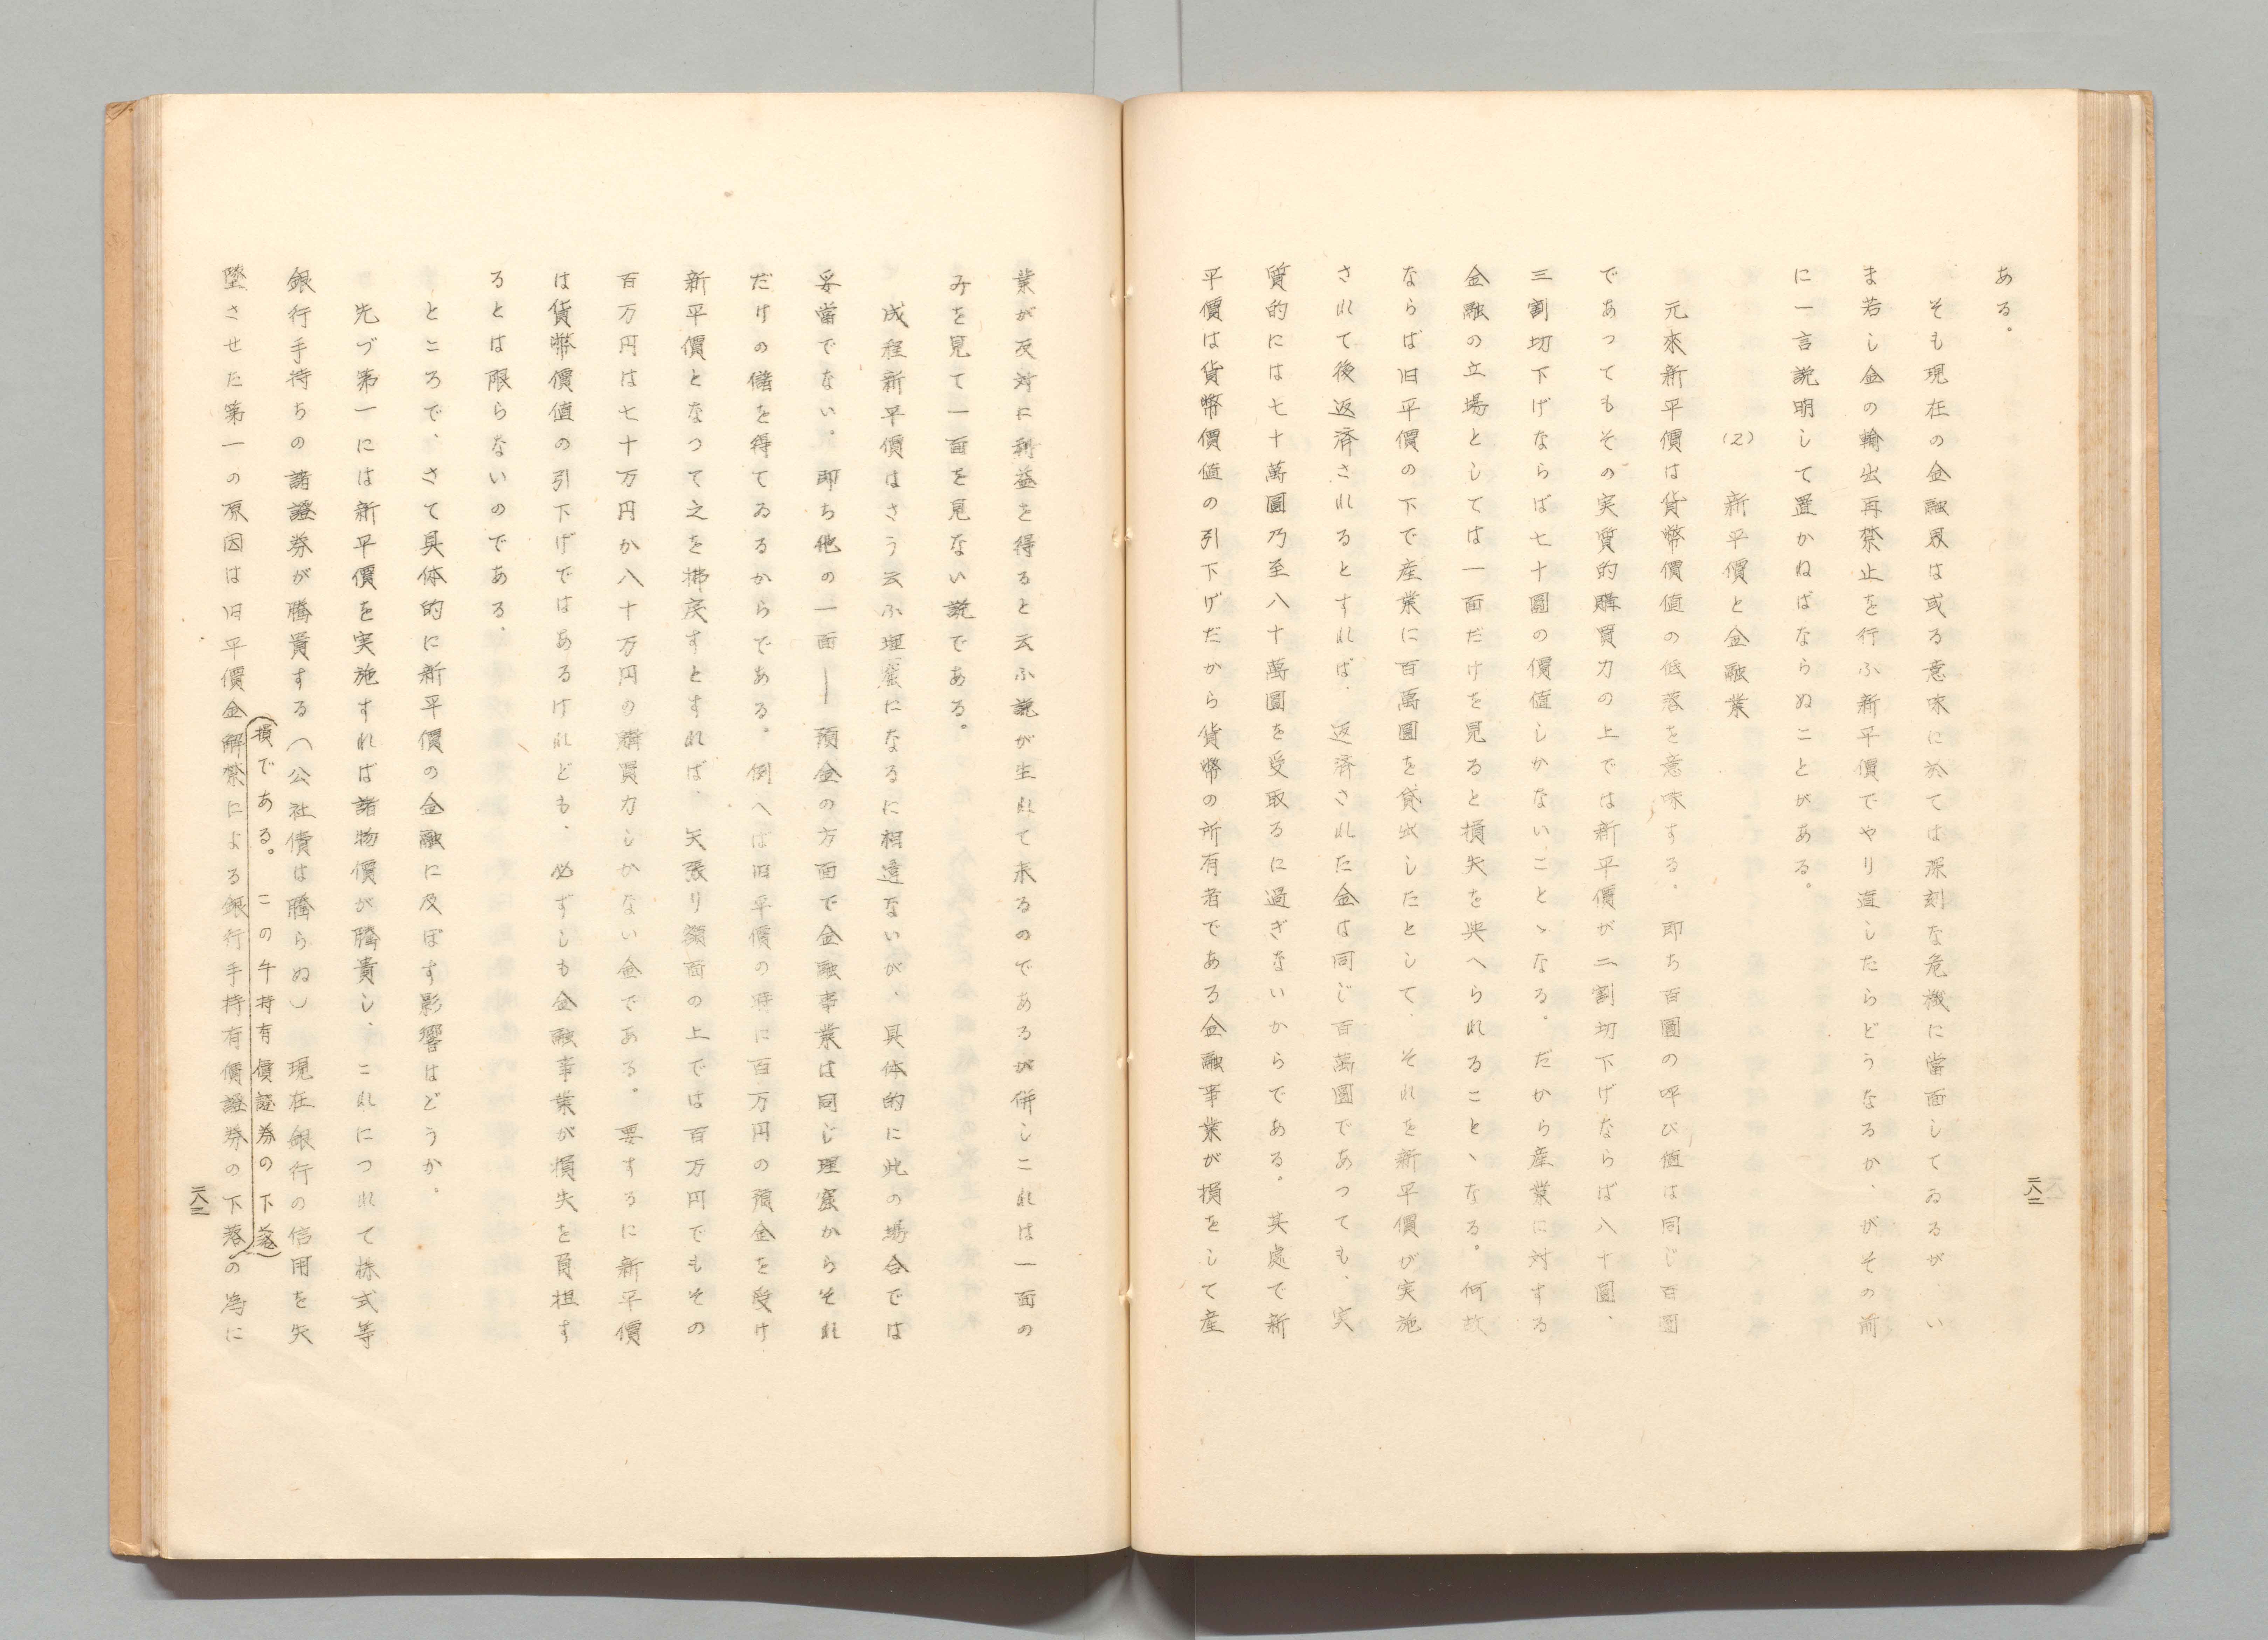 ある。
そも現在の金融界は或る意味に於ては深刻な危機に當面してゐるが、い
ま若し金の輸出再禁止を行ふ新平價でやり直したらどうなるか、がその前
に一言説明して置かねばならぬことがある。
(2) 新平價と金融業
元來新平價は貨幣價値の低落を意味する。即ち百圓の呼び値は同じ百圓
であつてもその実質的購買力の上では新平價が二割切下げならば八十圓、
三割切下げならば七十圓の價値しかないことゝなる。だから産業に対する
金融の立場としては一面だけを見ると損失を与へられることゝなる。何故
ならば旧平價の下で産業に百萬圓を貸出したとして、それを新平價が実施
されて後返済されるとすれば、返済された金は同じ百萬圓であつても、実
質的には七十萬圓乃至八十萬圓を受取るに過ぎないからである。其處で新
平價は貨幣價値の引下げだから貨幣の所有者である金融事業が損をして産
二八二
業が反対に利益を得ると云ふ説が生れて来るのであるが併しこれは一面の
みを見て一面を見ない説である。
成程新平價はさう云ふ理窟になるに相違ないが、具体的に此の場合では
妥當でない。即ち他の一面―預金の方面で金融事業は同じ理窟からそれ
だけの儲を得てゐるからである。例へば旧平價の時に百万円の預金を受け
新平價となつて之を拂戻すとすれば、矢張り額面の上では百万円でもその
百万円は七十万円か八十万円の購買力しかない金である。要するに新平價
は貨幣價値の引下げではあるけれども、必ずしも金融事業が損失を負担す
るとは限らないのである。
ところで、さて具体的に新平價の金融に及ぼす影響はどうか。
先づ第一には新平價を実施すれば諸物價が騰貴し、これにつれて株式等
銀行手持ちの諸證券が騰貴する(公社債は騰らぬ) 現在銀行の信用を失
墜させた第一の原因は旧平價金解禁による銀行手持有價證券の下落の為に
(損である。この手持有價證券の下落)
二八三